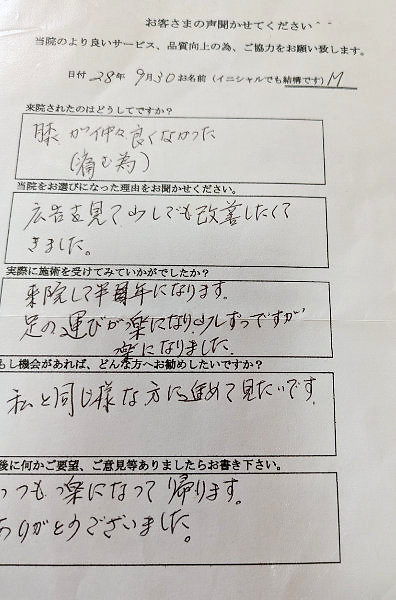 お客さまの声聞かせてください^^
当院のより良いサービス、品質向上の為、ご協力をお願い致します。
日付 28年 9月30 お名前 (イニシャルでも結構です) M
来院されたのはどうしてですか?
膝が仲々良くなかった
(痛む為)
当院をお選びになった理由をお聞かせください。
広告を見て少しでも改善したくて
きました。
実際に施術を受けてみていかがでしたか?
来院して半年になります。
足の運びが楽になり、少しずつですが
楽になりました。
もし機会があれば、どんな方へお勧めしたいですか?
私と同じ様な方に進めて見たいです。
後に何かご要望、ご意見等ありましたらお書き下さい。
いつも楽になって帰ります。
ありがとうございました。